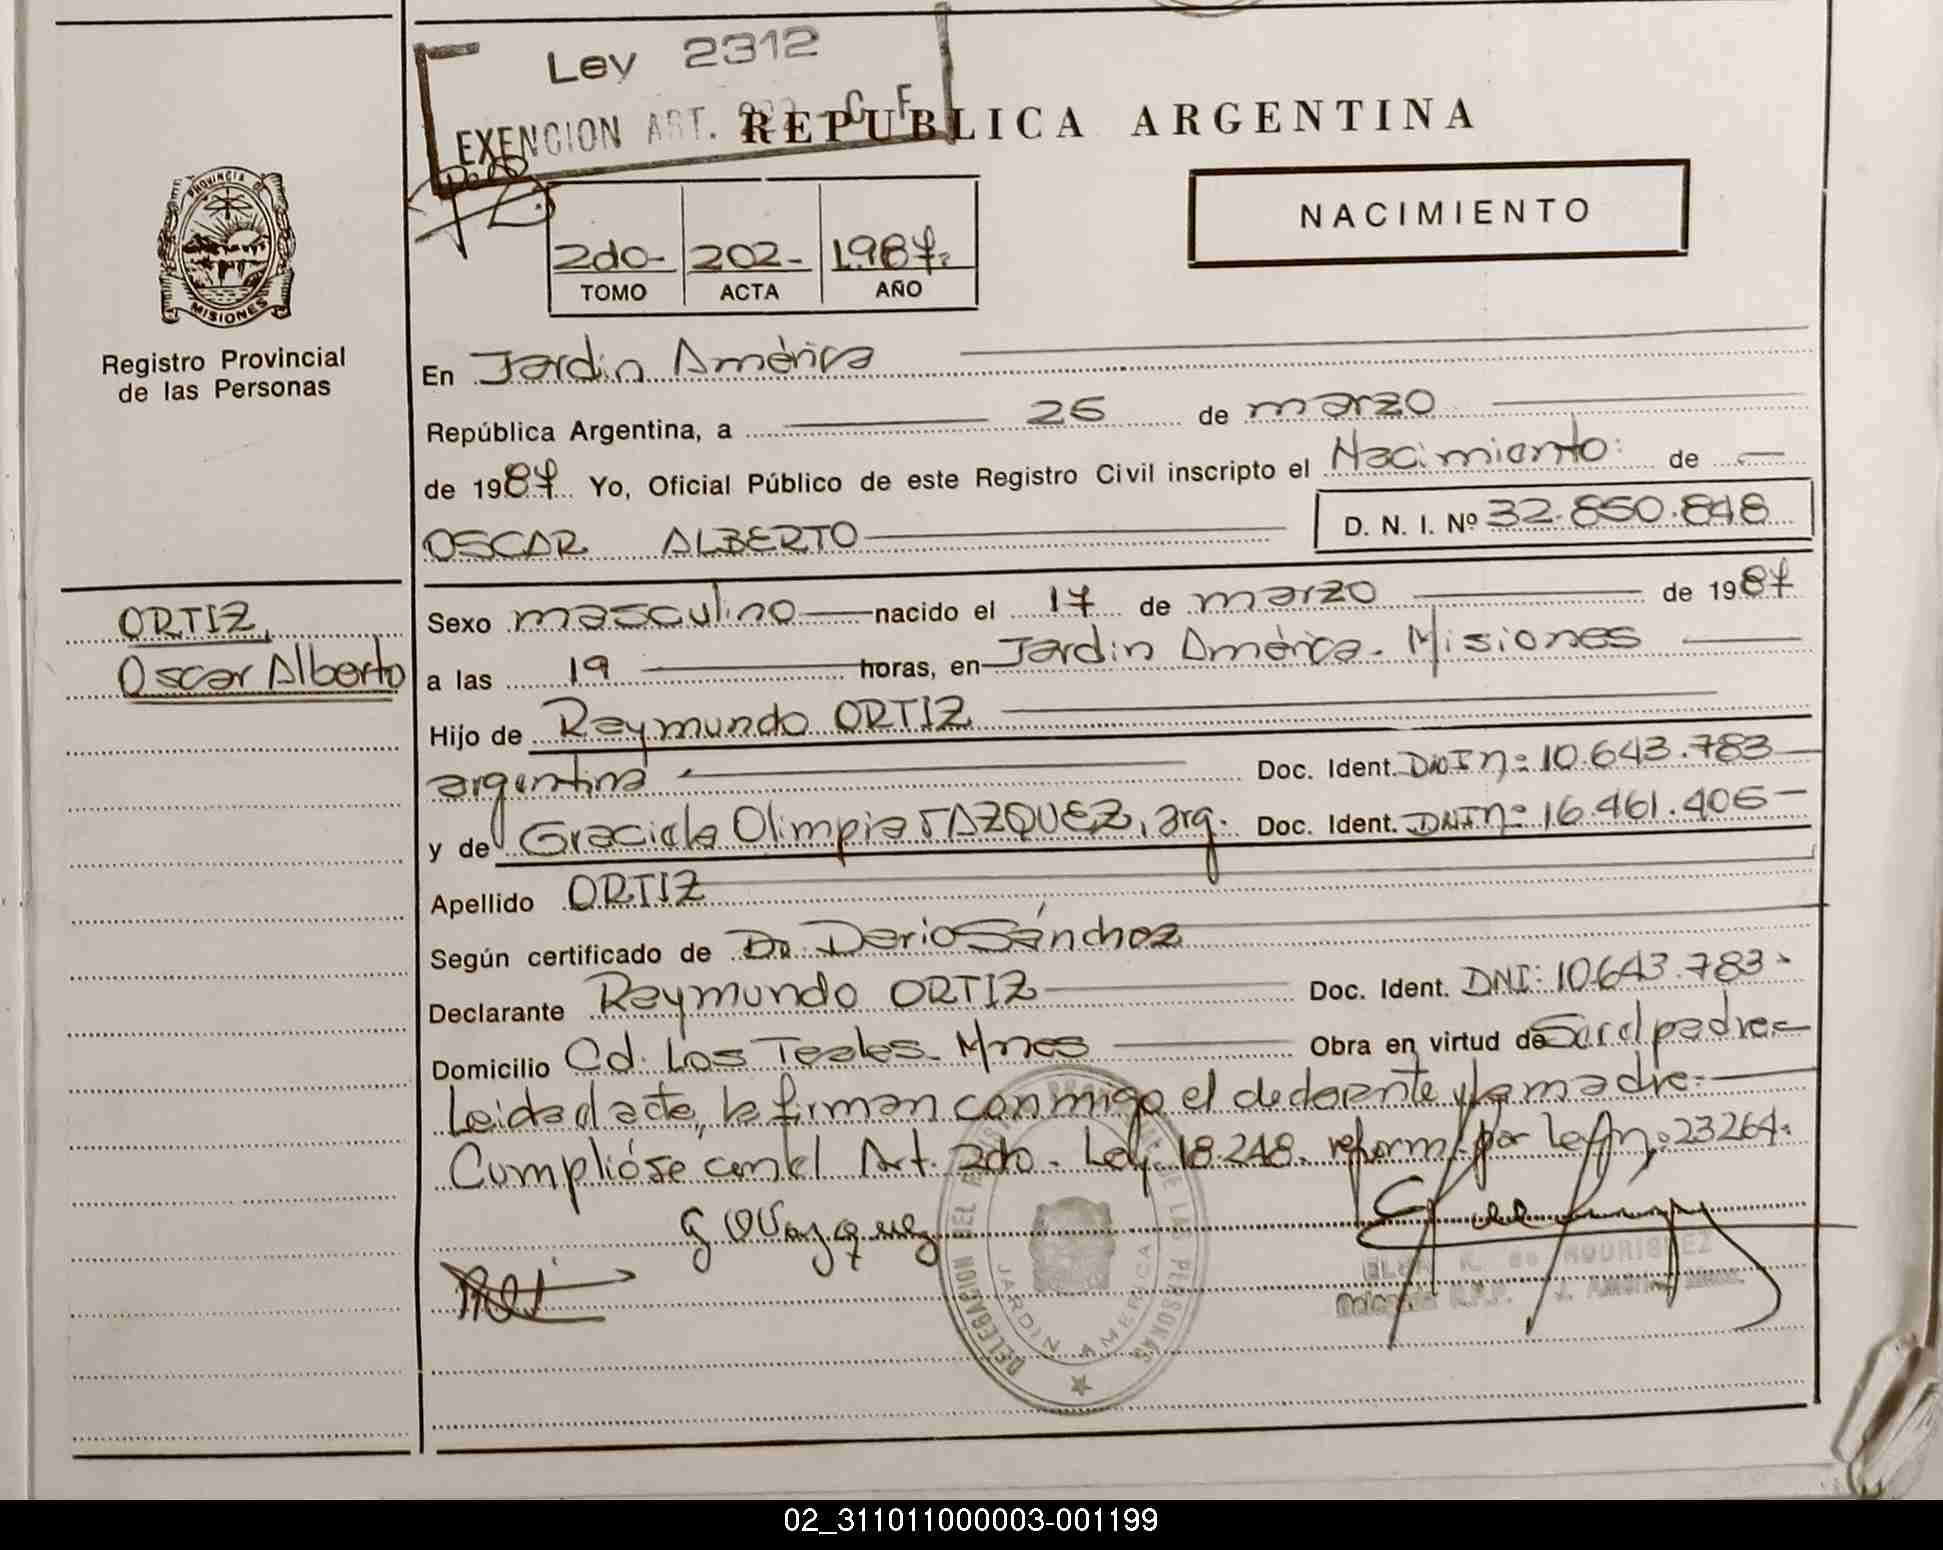 Ley 2312
EXENCION ART. C F
REPUBLICA ARGENTINA
PROVINCIA DE
MISIONES
Registro Provincial
de las Personas
2do- 202- 1.987.
TOMO ACTA AÑO
NACIMIENTO
En Jardin América
República Argentina, a 26 de marzo
de 1987 Yo, Oficial Público de este Registro Civil inscripto el Nacimiento: de —
OSCAR ALBERTO D. N. I. Nº 32.850.848
ORTIZ,
Oscar Alberto
Sexo masculino nacido el 17 de marzo de 1987
a las 19 horas, en Jardin América. Misiones
Hijo de Raymundo ORTIZ
argentina Doc. Ident. DNI nº 10.643.783
y de Graciela Olimpia VAZQUEZ, arg. Doc. Ident. DNI nº 16.461.406-
Apellido ORTIZ
Según certificado de Dr. Dario Sánchez
Declarante Raymundo ORTIZ Doc. Ident. DNI: 10643.783.
Domicilio Cd. Los Teales. Mnes Obra en virtud de Ser el padre-
Leida el acta, la firman conmigo el declarante y la madre.-
Cumplióse con el Art. 2do. Ley. 18.248. reform. por Ley nº 23264.
G O Vazquez
DELEGACION DEL REGISTRO PROVINCIAL DE LAS PERSONAS
JARDIN AMERICA
ELSA K. de RODRIGUEZ
Delegada R.P.P. J. América Mnes.
02_311011000003-001199